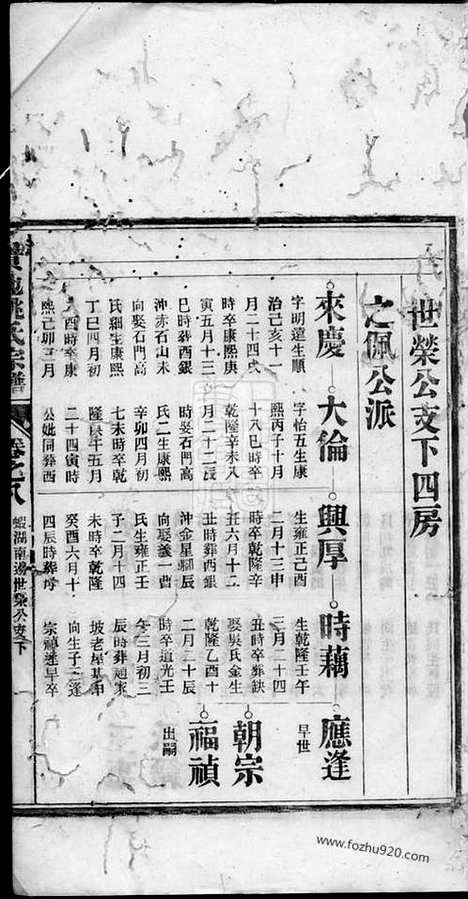 世榮公支下四房
之佩公派
來慶
字明遠生順
治己亥十一
月二十四戌
時卒康熙庚
寅五月十三
巳時葬酉銀
沖赤石山未
向娶石門高
氏細生康熙
丁巳四月初
酉時卒康
熙己卯三月
大倫
字怡五生康
熙丙子十月
十八巳時卒
乾隆辛未八
月二十二辰
時娶石門高
氏二生康熙
辛卯四月初
七未時卒乾
隆戊午五月
二十四寅時
公妣同葬酉
興厚
生雍正己酉
二月十三申
時卒乾隆辛
丑六月十二
丑時葬西銀
沖金星腦辰
向娶羲一曹
氏生雍正壬
子二月十四
未時卒乾隆
癸酉六月十
四辰時葬母
時藕
生乾隆壬午
三月二十四
丑時卒葬缺
娶吳氏金生
乾隆乙酉十
二月二十辰
時卒道光壬
午三月初三
辰時葬趙家
坡老屋基申
向生子三逢
宗禎逢早卒
應逢
早世
朝宗
福禎
出嗣
姚氏宗譜
卷之八
蝦湖南邊世榮公支下
www.fozhu920.com